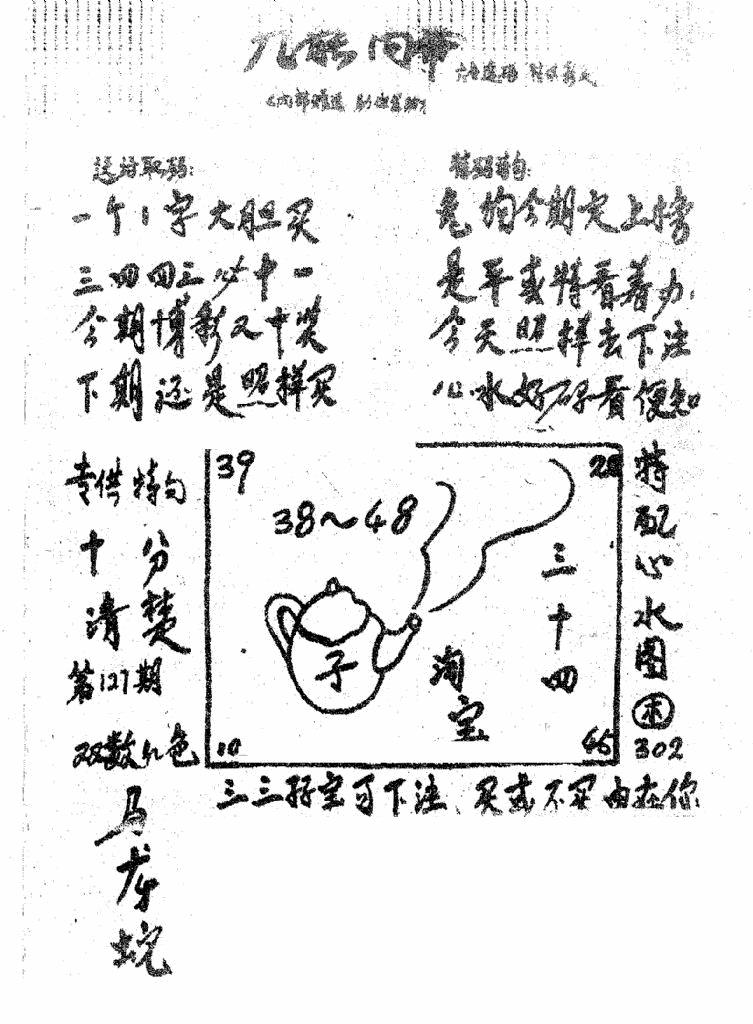 一个1字大胆买
三四四三必中一
今期博彩又中奖
下期还是照样买
兔狗今期定上榜
是平或特看着办
今天照样去下注
心水好码看便知
专供特句
十分
清楚
第127期
双数红色
马
龙
蛇
39
38~48
三十四
子
淘宝
10
特配心水图
302
三三好宝可下注、买或不买由在你